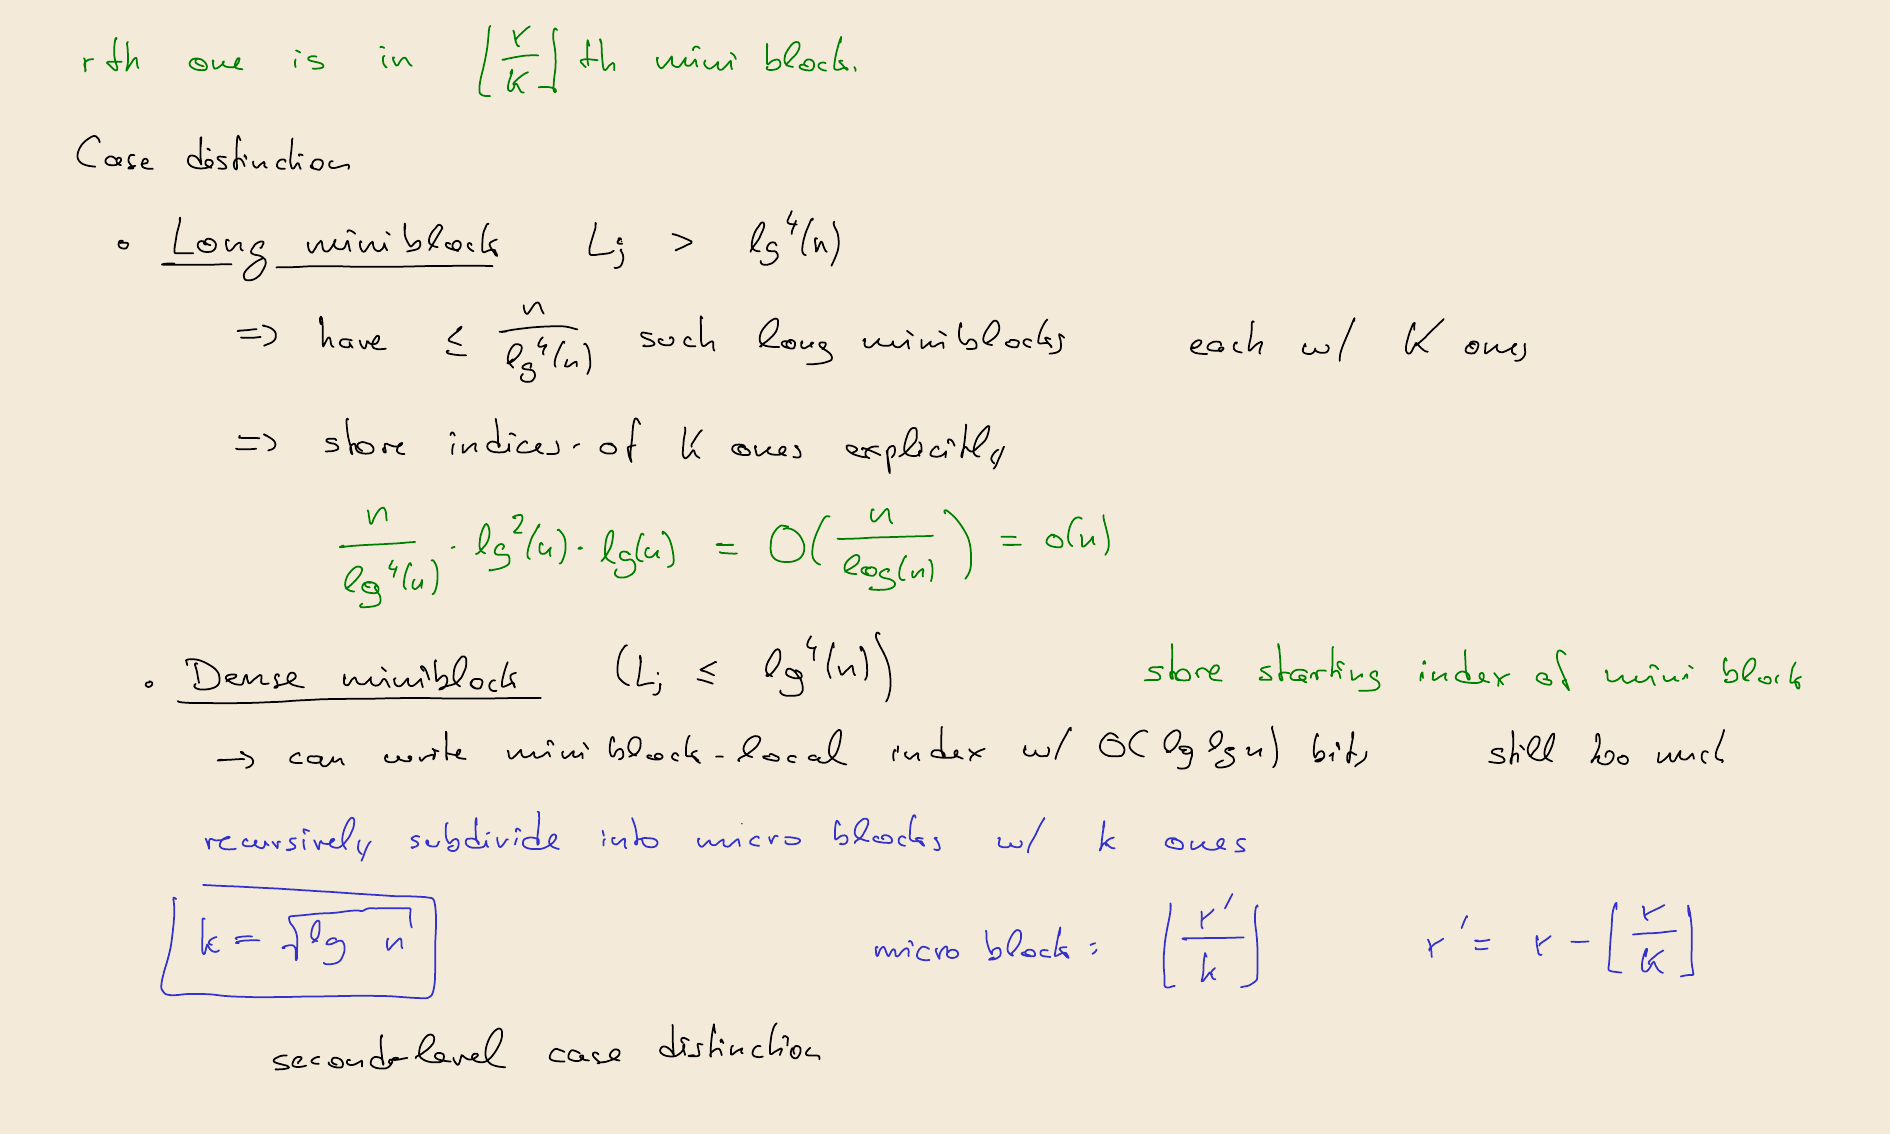 rth one is in ⌊r/K⌋ th mini block.
Case distinction
• Long miniblock L_j > lg^4(n)
=> have ≤ n/lg^4(n) such long miniblocks each w/ K ones
=> store indices of K ones explicitly
n/lg^4(n) · lg^2(n) · lg(n) = O(n/log(n)) = o(n)
• Dense miniblock (L_j ≤ lg^4(n)) store starting index of mini block
→ can write mini block-local index w/ O(lg lg n) bits still too much
recursively subdivide into micro blocks w/ k ones
k = √lg n micro block: ⌊r'/k⌋ r' = r - ⌊r/K⌋
second-level case distinction